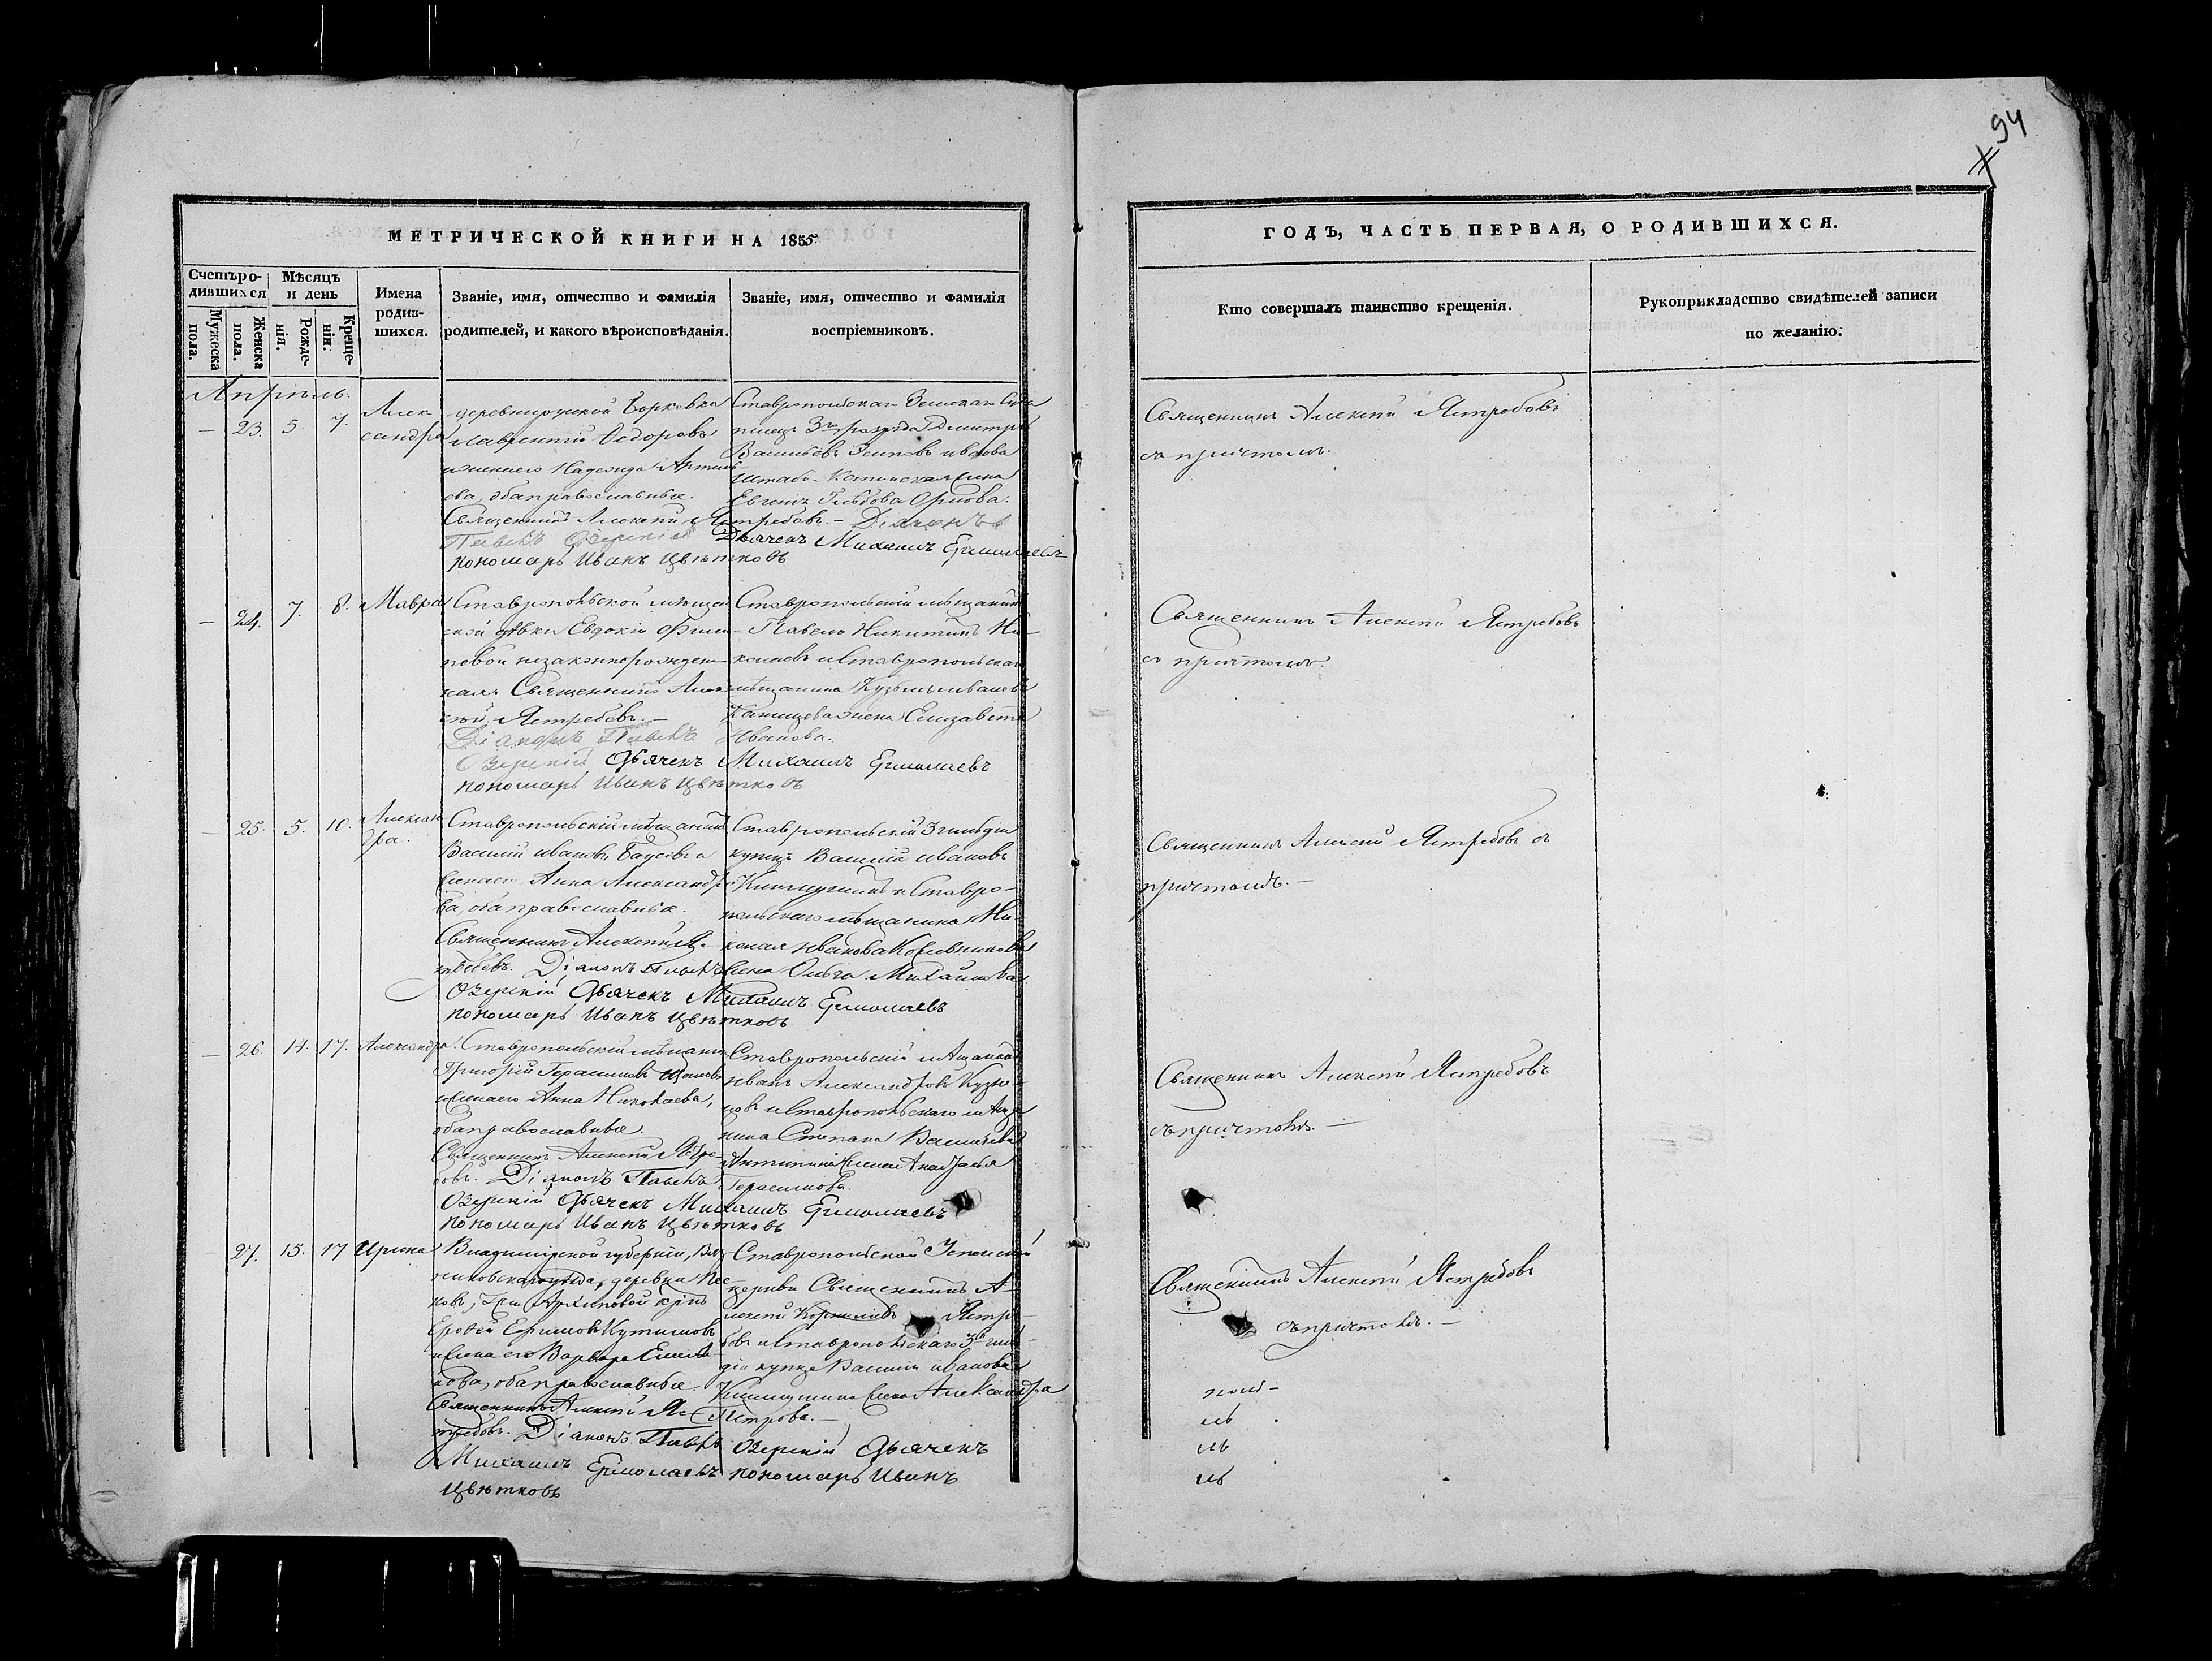 94
МЕТРИЧЕСКОЙ КНИГИ НА 1855
Счетъ родившихся
Мужеска пола.
Женска пола.
Мѣсяцъ и день
Рожденія.
Крещенія.
Имена родившихся.
Званіе, имя, отчество и фамилія родителей, и какого вѣроисповѣданія.
Званіе, имя, отчество и фамилія воспріемниковъ.
ГОДЪ, ЧАСТЬ ПЕРВАЯ, О РОДИВШИХСЯ.
Кто совершалъ таинство крещенія.
Рукоприкладство свидѣтелей записи по желанію.
Апрѣль.
— 23. 5. 7.
Алек
сандра
деревни Борковка
Лаврентій Ѳедоровъ
и жена его Надежда
ева, оба православные.
Священникъ Алексѣй Ястребовъ. – Діаконъ
Павелъ Озерскій Дьячекъ Михаилъ Ермолаевъ
пономарь Иванъ Цвѣтковъ
Ставропольскаго Земскаго Суда
писецъ 3го разряда Дмитрій
Васильевъ и вдова
Штабс-Капитанская жена
Евгенія Глѣбова Орлова.
Священникъ Алексѣй Ястребовъ
съ причтомъ.
— 24. 7. 8. Мавра
Ставропольской мѣщан
ской дѣвки Евдокіи Фили
повой незаконнорожден
ная Священникъ Алек
сѣй Ястребовъ. —
Діаконъ Павелъ
Озерскій Дьячекъ Михаилъ Ермолаевъ
пономарь Иванъ Цвѣтковъ
Ставропольскій мѣщанинъ
Павелъ Никитинъ Ни-
колаевъ и Ставропольскаго
мѣщанина Кузьмы Иванова
жена Елизавета
Иванова.
Священникъ Алексѣй Ястребовъ
съ причтомъ.
— 25. 5. 10. Алексан
дра.
Ставропольскій мѣщанинъ
Василій Ивановъ и
жена его Анна Александро
ва, оба православные.
Священникъ Алексѣй Яс-
требовъ. Діаконъ Павелъ
Озерскій Дьячекъ Михаилъ Ермолаевъ
пономарь Иванъ Цвѣтковъ
Ставропольскій 3 гильдіи
купецъ Василій Ивановъ
и Ставро-
польскаго мѣщанина Ни-
колая Иванова Кожевникова
жена Ольга Михайлова.
Священникъ Алексѣй Ястребовъ съ
причтомъ. —
— 26. 14. 17. Александра.
Ставропольскій мѣщанинъ
Григорій Герасимовъ
и жена его Анна Николаева,
оба православные.
Священникъ Алексѣй Ястре-
бовъ. Діаконъ Павелъ
Озерскій Дьячекъ Михаилъ Ермолаевъ
пономарь Иванъ Цвѣтковъ
Ставропольскій мѣщанинъ
Иванъ Александровъ Кузне-
цовъ и Ставропольскаго мѣща
нина Степана Васильева
Антипина жена
Герасимова.
Священникъ Алексѣй Ястребовъ
съ причтомъ. —
27. 15. 17 Ирина
Владимірской губерніи, Вяз
никовскаго уѣзда, деревни
Ефимовъ
и жена его Варвара
нова, оба православные.
Священникъ Алексѣй Яс
требовъ. Діаконъ Павелъ Озерскій Дьячекъ
Михаилъ Ермолаевъ пономарь Иванъ
Цвѣтковъ
Ставропольской Успенской
церкви Священникъ А-
лексѣй Ястре-
бовъ и Ставропольскаго 3й гиль-
діи купца Василія Иванова
жена Александра
Петрова. —
Священникъ Алексѣй Ястребовъ
съ причтомъ. —